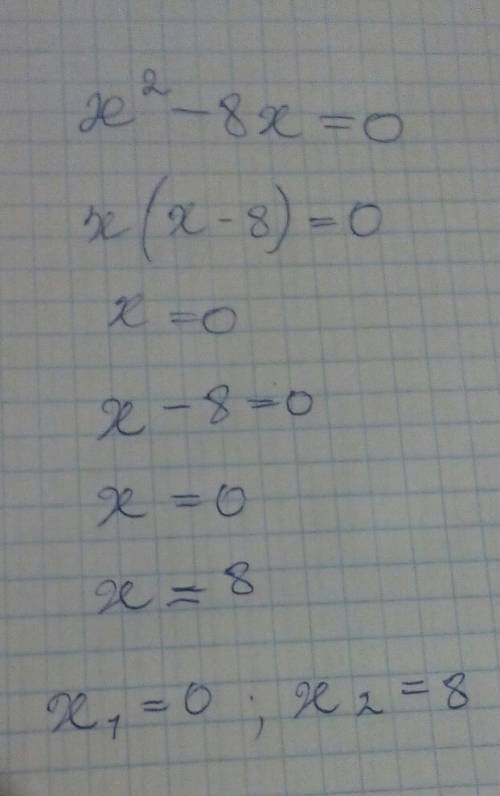 x² - 8x = 0
x(x - 8) = 0
x = 0
x - 8 = 0
x = 0
x = 8
x₁ = 0 ; x₂ = 8